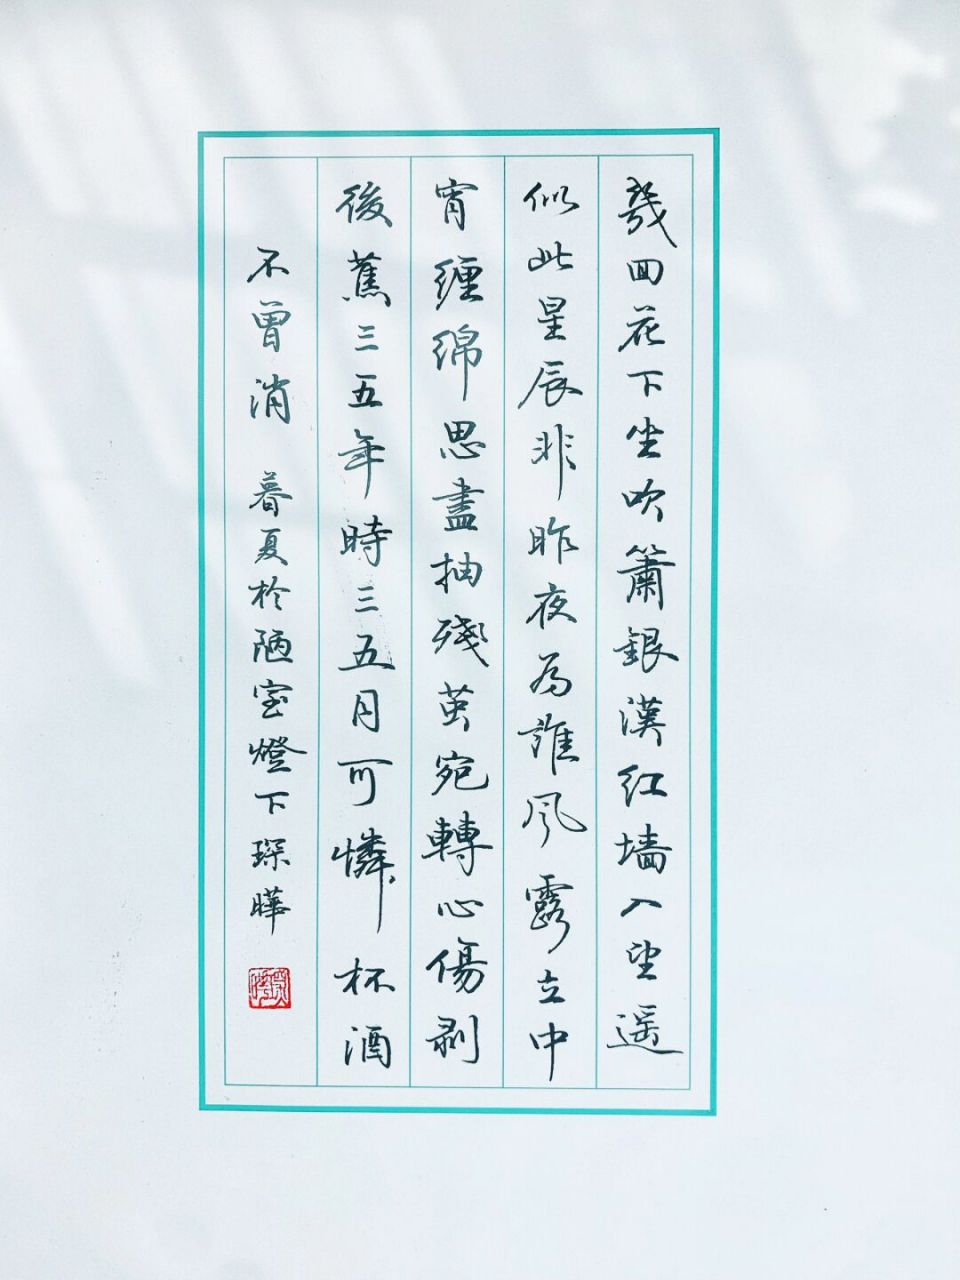 幾回花下坐吹簫銀漢红墙入望遥
似此星辰非昨夜为誰風露立中
宵缠绵思盡抽殘茧宛轉心傷剥
後蕉三五年時三五月可憐杯酒
不曾消 暮夏於陋室燈下琛曄